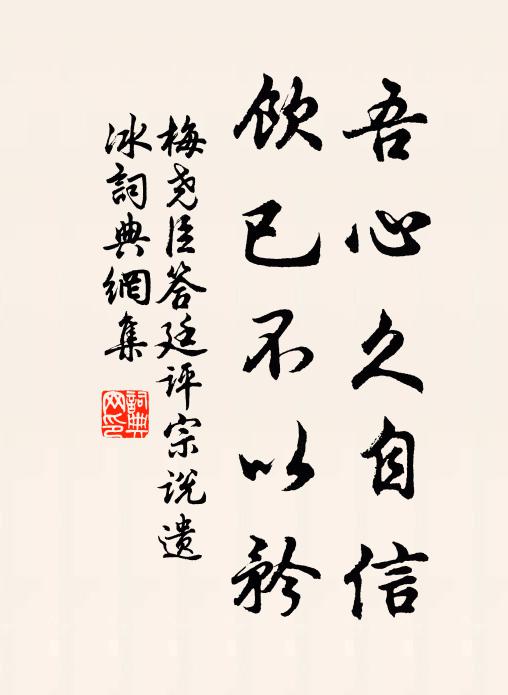 吾心久自信
飲已不以矜
梅尧臣答廷评宗说遗
冰詞典網集
詞典
网印